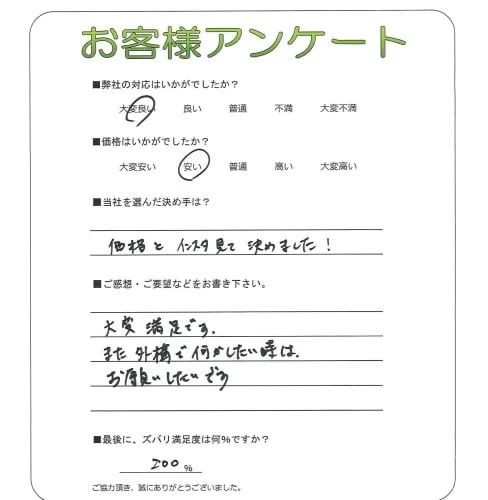 お客様アンケート
■弊社の対応はいかがでしたか?
大変良い 良い 普通 不満 大変不満
■価格はいかがでしたか?
大変安い 安い 普通 高い 大変高い
■当社を選んだ決め手は?
価格と インスタ見て 決めました!
■ご感想・ご要望などをお書き下さい。
大変 満足です.
また 外構で 何かしたい時は.
お願いしたいです
■最後に、ズバリ満足度は何%ですか?
200 %
ご協力頂き、誠にありがとうございました。